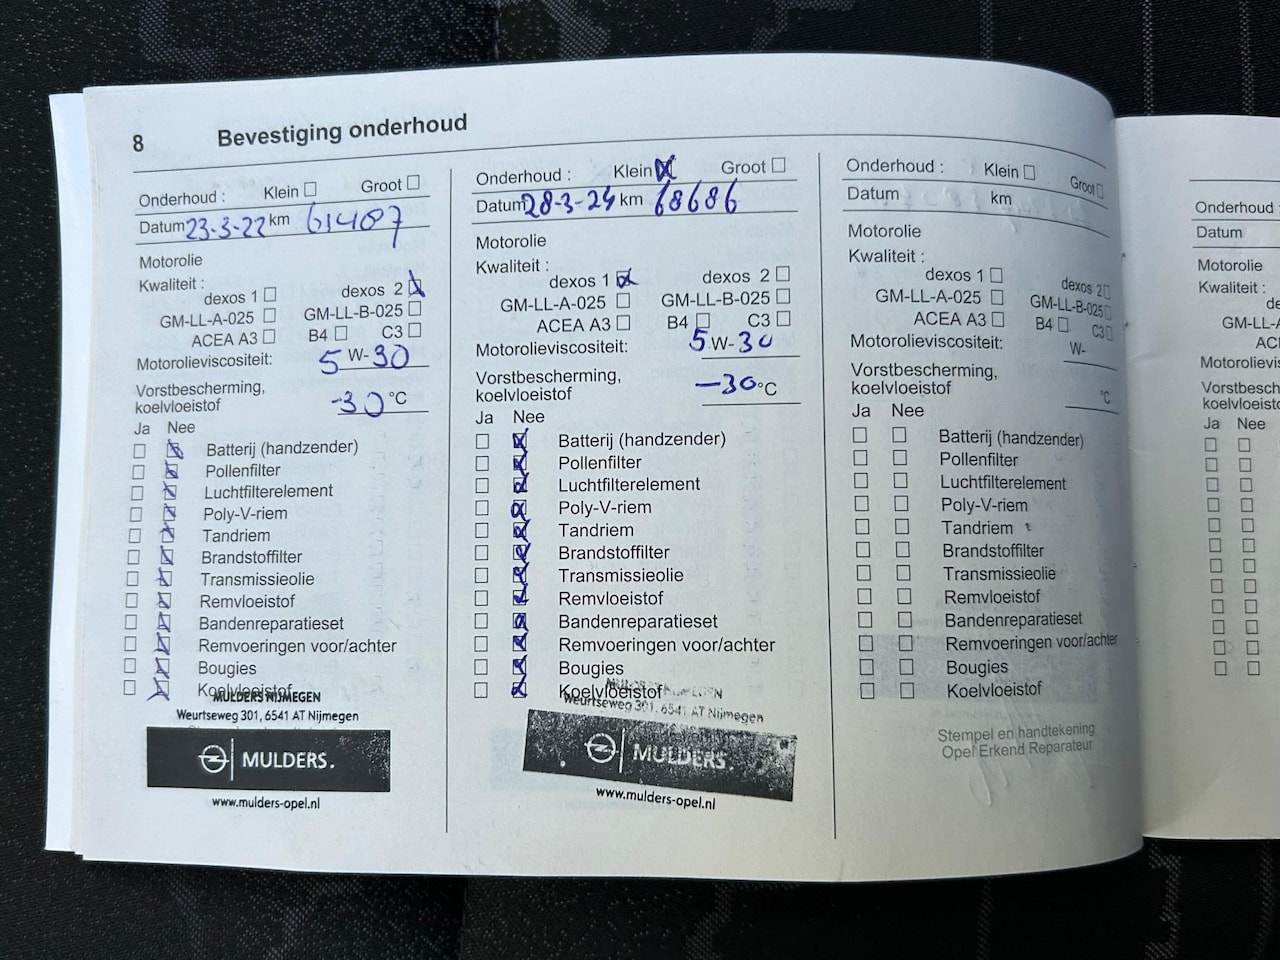 8 Bevestiging onderhoud
Onderhoud : Klein Groot
Datum 23-3-22 km 61487
Motorolie
Kwaliteit :
dexos 1 dexos 2
GM-LL-A-025 GM-LL-B-025
ACEA A3 B4 C3
Motorolieviscositeit: 5 W- 30
Vorstbescherming,
koelvloeistof -30 °C
Ja Nee
Batterij (handzender)
Pollenfilter
Luchtfilterelement
Poly-V-riem
Tandriem
Brandstoffilter
Transmissieolie
Remvloeistof
Bandenreparatieset
Remvoeringen voor/achter
Bougies
Koelvloeistof
MULDERS NIJMEGEN
Weurtseweg 301, 6541 AT Nijmegen
MULDERS.
www.mulders-opel.nl
Onderhoud : Klein Groot
Datum 28-3-24 km 68686
Motorolie
Kwaliteit :
dexos 1 dexos 2
GM-LL-A-025 GM-LL-B-025
ACEA A3 B4 C3
Motorolieviscositeit: 5 W- 30
Vorstbescherming,
koelvloeistof -30 °C
Ja Nee
Batterij (handzender)
Pollenfilter
Luchtfilterelement
Poly-V-riem
Tandriem
Brandstoffilter
Transmissieolie
Remvloeistof
Bandenreparatieset
Remvoeringen voor/achter
Bougies
Koelvloeistof
Weurtseweg 301, 6541 AT Nijmegen
MULDERS.
www.mulders-opel.nl
Onderhoud : Klein Groot
Datum km
Motorolie
Kwaliteit :
dexos 1 dexos 2
GM-LL-A-025 GM-LL-B-025
ACEA A3 B4 C3
Motorolieviscositeit: W-
Vorstbescherming,
koelvloeistof °C
Ja Nee
Batterij (handzender)
Pollenfilter
Luchtfilterelement
Poly-V-riem
Tandriem
Brandstoffilter
Transmissieolie
Remvloeistof
Bandenreparatieset
Remvoeringen voor/achter
Bougies
Koelvloeistof
Stempel en handtekening
Opel Erkend Reparateur
Onderhoud :
Datum
Motorolie
Kwaliteit :
de
GM-LL-A
AC
Motorolievis
Vorstbesch
koelvloeist
Ja Nee